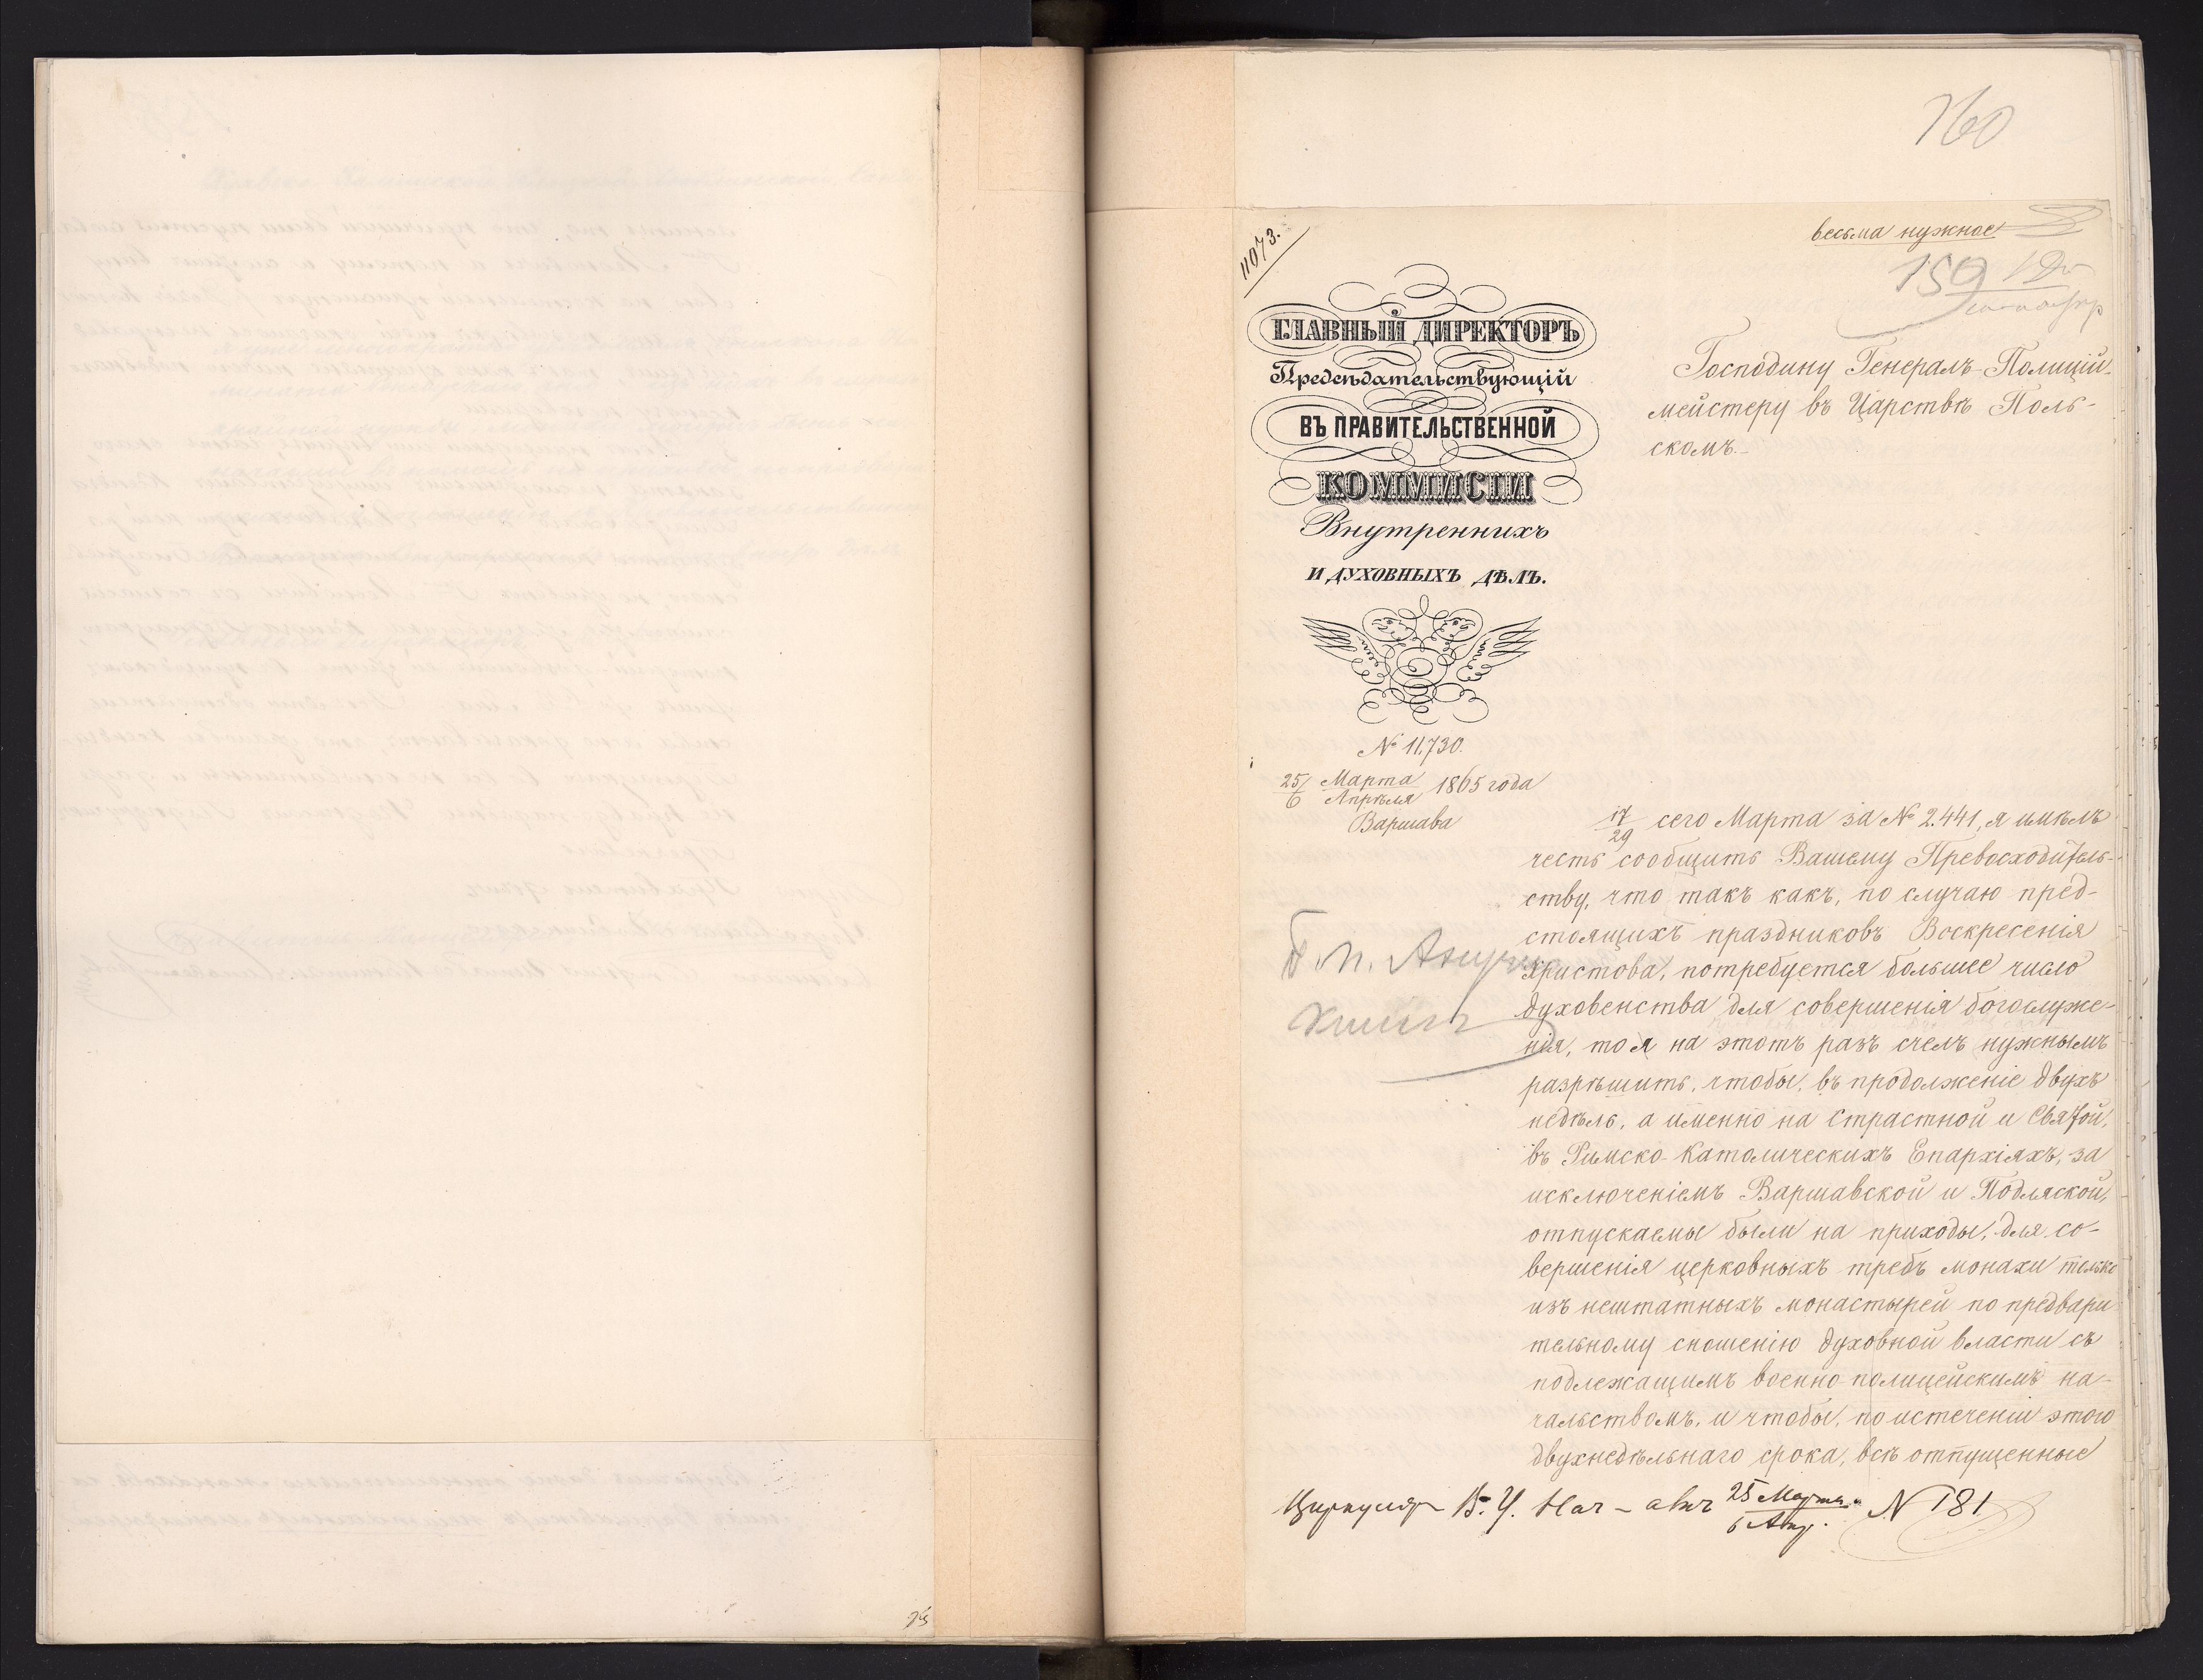 160
весьма нужное
11073.
159
ГЛАВНЫЙ ДИРЕКТОРЪ
Предсѣдательствующій
ВЪ ПРАВИТЕЛЬСТВЕННОЙ
КОММИСІИ
Внутреннихъ
И ДУХОВНЫХЪ ДѢЛЪ.
№ 11.730.
25/6 Марта/Апрѣля 1865 года
Варшава
Господину Генералъ-Полиціи-
мейстеру въ Царствѣ Поль-
скомъ.-
17/29 сего Марта за № 2.441, я имѣлъ
честь сообщить Вашему Превосходитель-
ству, что такъ какъ, по случаю пред-
стоящихъ праздниковъ Воскресенія
Христова, потребуется большее число
духовенства для совершенія богослуже-
нія, то я на этотъ разъ счелъ нужнымъ
разрѣшить, чтобы, въ продолженіе двухъ
недѣль, а именно на Страстной и Святой,
въ Римско-Католическихъ Епархіяхъ, за
исключеніемъ Варшавской и Подляской,
отпускаемы были на приходы, для со-
вершенія церковныхъ требъ монахи только
изъ нештатныхъ монастырей по предвари
тельному сношенію духовной власти съ
подлежащимъ военно-полицейскимъ на-
чальствомъ, и чтобы, по истеченіи этого
двухнедѣльнаго срока, всѣ отпущенные
Циркуляръ В. У. Нач-амъ 25 Марта/6 Апр. № 181